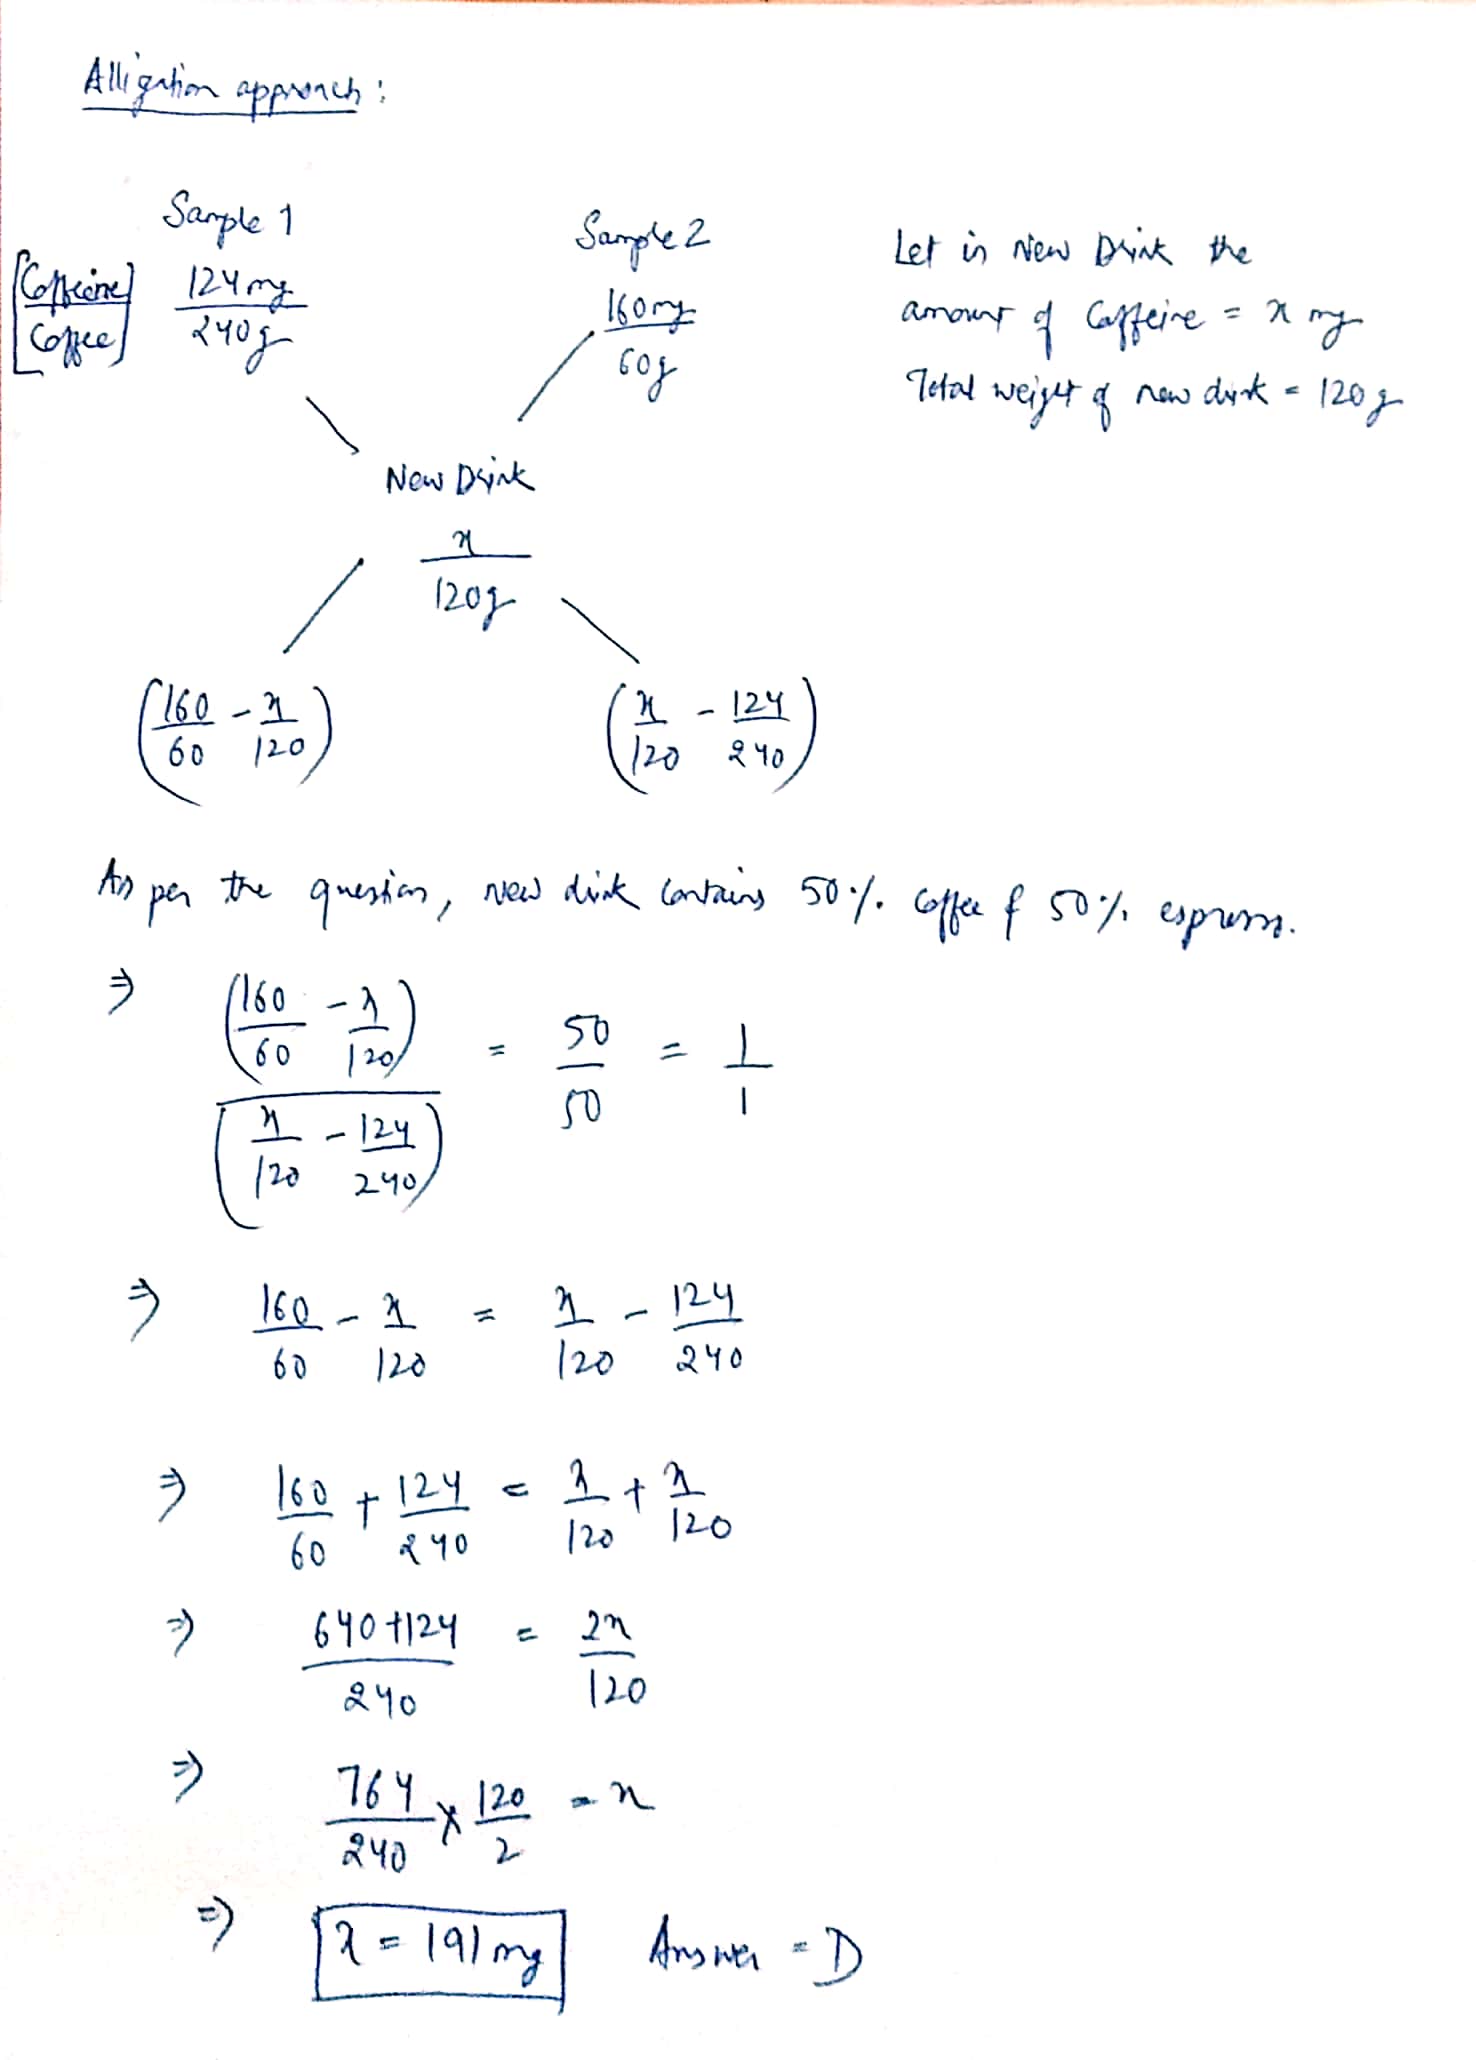 Alligation approach:
Sample 1
Sample 2
[Caffeine/Coffee] 124mg/240g
160mg/60g
Let in New Drink the
amount of Caffeine = x mg
Total weight of new drink = 120g
New Drink
x/120g
(160/60 - x/120)
(x/120 - 124/240)
As per the question, new drink contains 50% coffee & 50% espresso.
⇒ (160/60 - x/120)/(x/120 - 124/240) = 50/50 = 1/1
⇒ 160/60 - x/120 = x/120 - 124/240
⇒ 160/60 + 124/240 = x/120 + x/120
⇒ (640+124)/240 = 2x/120
⇒ 764/240 × 120/2 = x
⇒ x = 191mg Answer = D